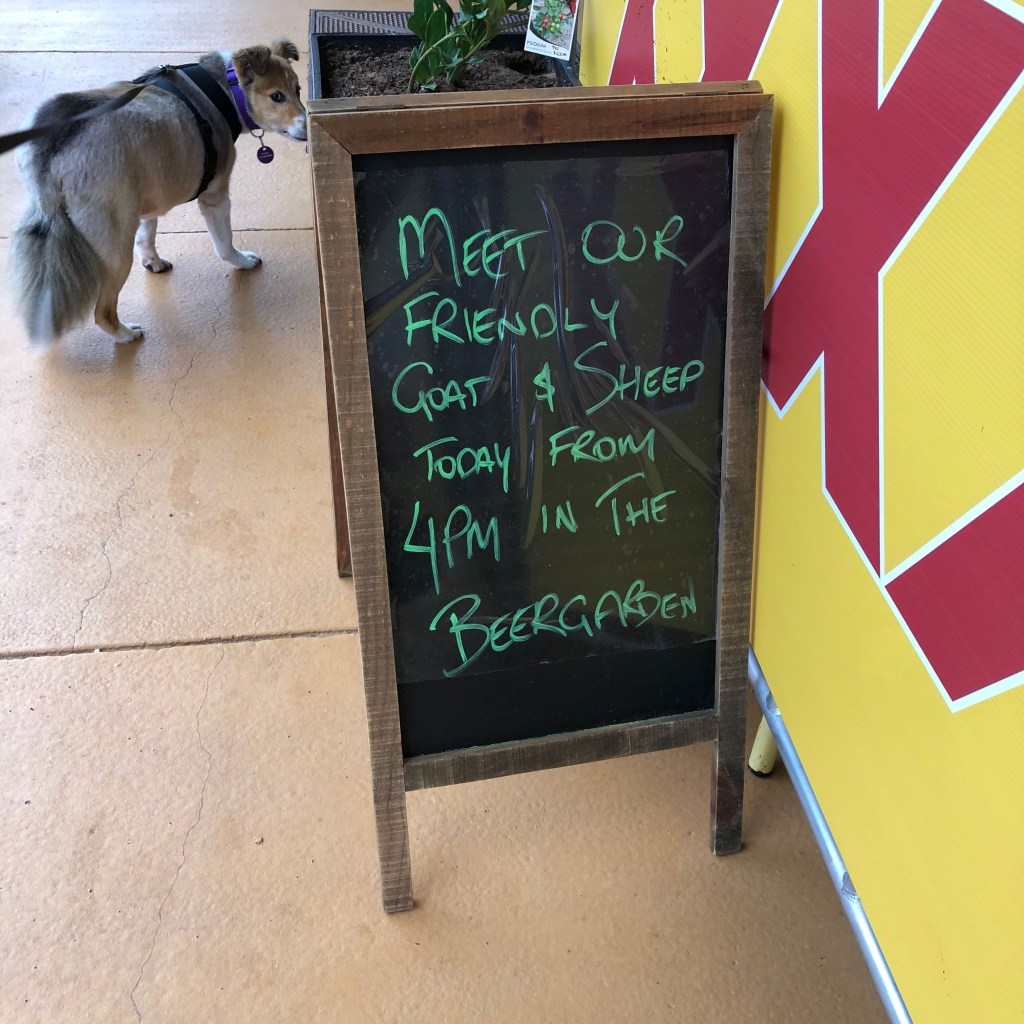 MEET OUR
FRIENDLY
GOAT & SHEEP
TODAY FROM
4PM IN THE
BEERGARDEN